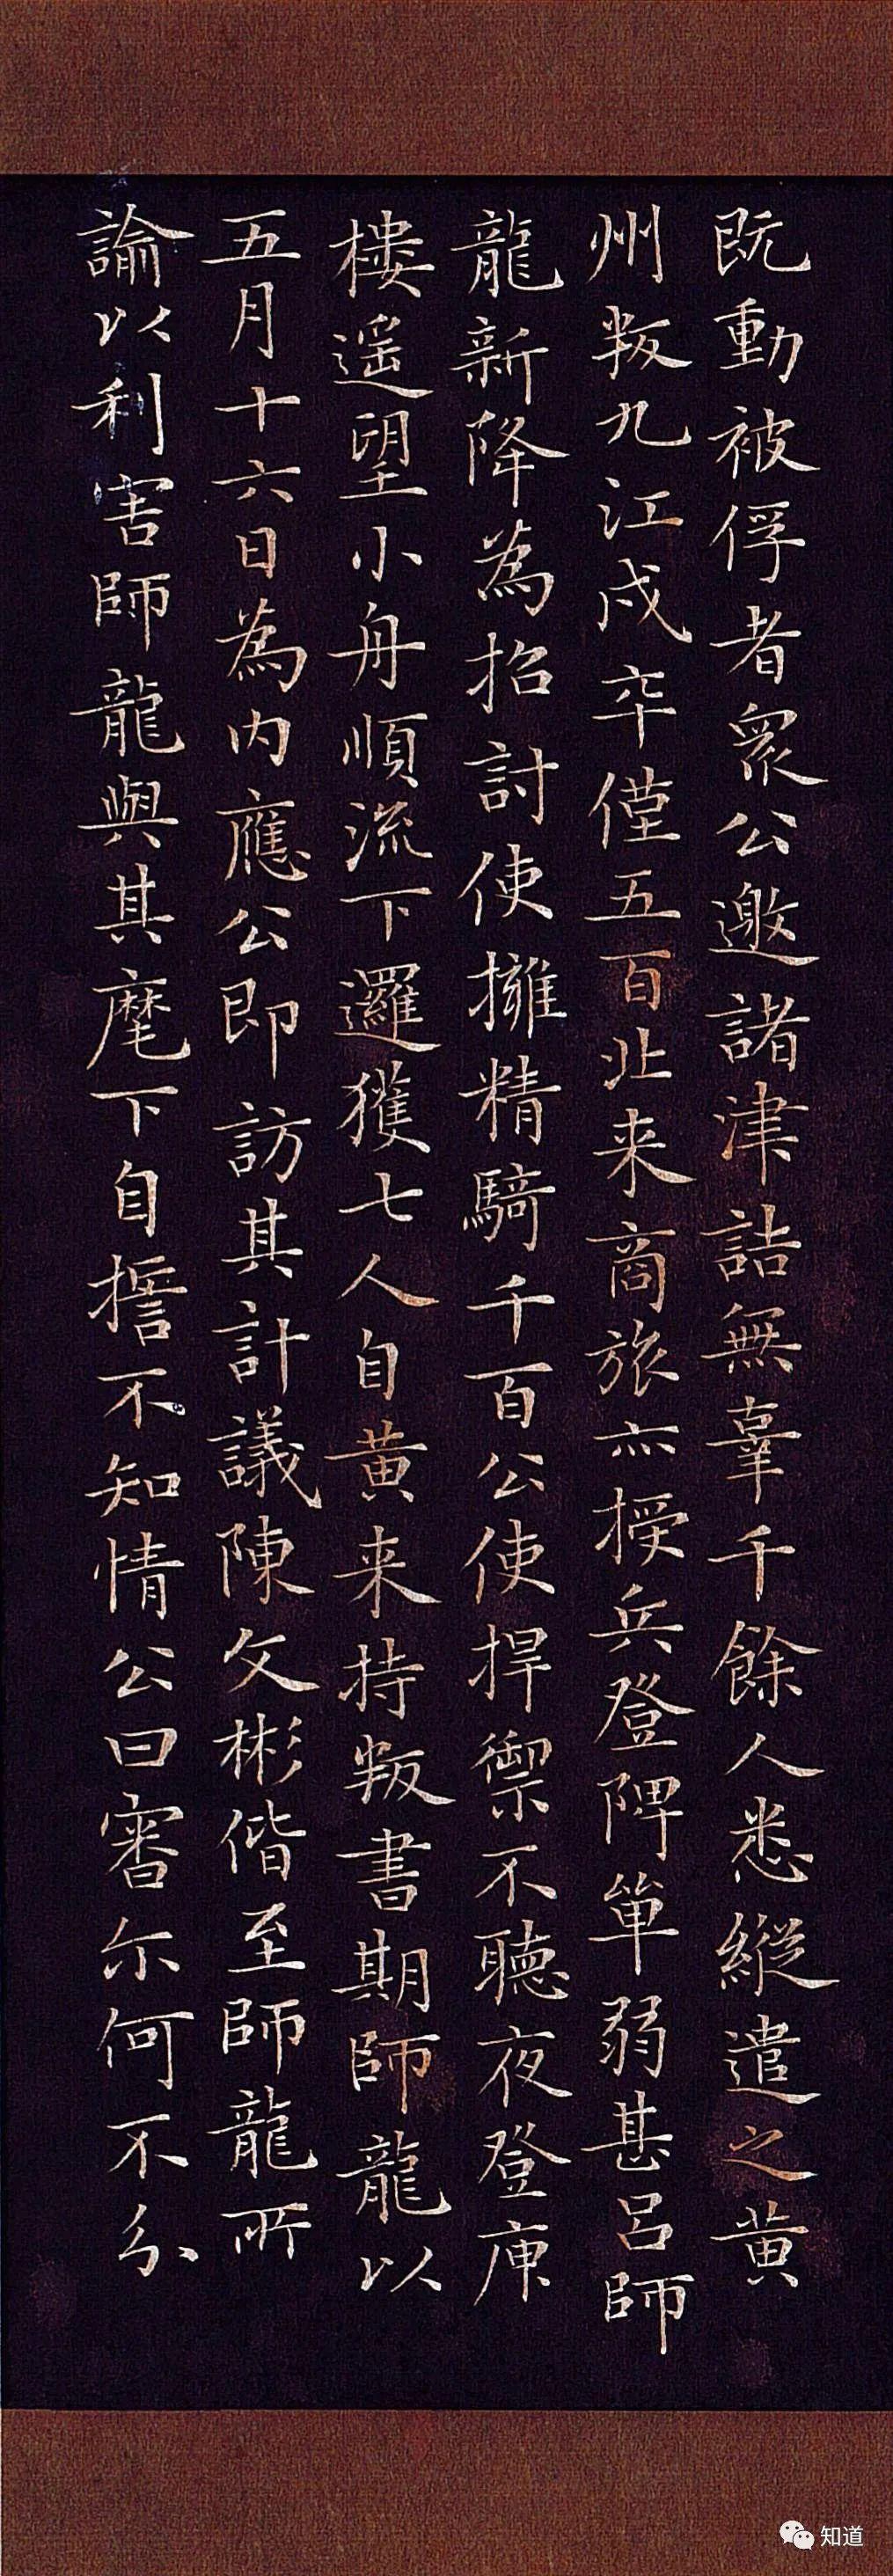 既動被俘者眾公邀諸津詰無辜千餘人悉縱遣之黄
州叛九江戍卒僅五百北来商旅亦授兵登陴單弱甚呂師
龍新降為招討使擁精騎千百公使捍禦不聽夜登庾
樓遥望小舟順流下邏獲七人自黄来持叛書期師龍以
五月十六日為内應公即訪其計議陳文彬偕至師龍所
諭以利害師龍與其麾下自擔不知情公曰審尔何不分
知道